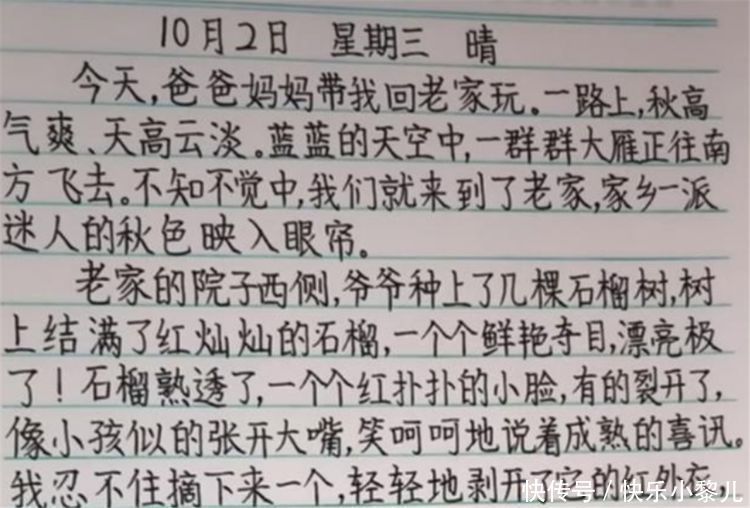 10月2日 星期三 晴
今天,爸爸妈妈带我回老家玩。一路上,秋高
气爽、天高云淡。蓝蓝的天空中,一群群大雁正往南
方飞去。不知不觉中,我们就来到了老家,家乡一派
迷人的秋色映入眼帘。
老家的院子西侧,爷爷种上了几棵石榴树,树
上结满了红灿灿的石榴,一个个鲜艳夺目,漂亮极
了!石榴熟透了,一个个红扑扑的小脸,有的裂开了,
像小孩似的张开大嘴,笑呵呵地说着成熟的喜讯。
我忍不住摘下来一个,轻轻地剥开了它的红外衣。
快传号/快乐小黎儿